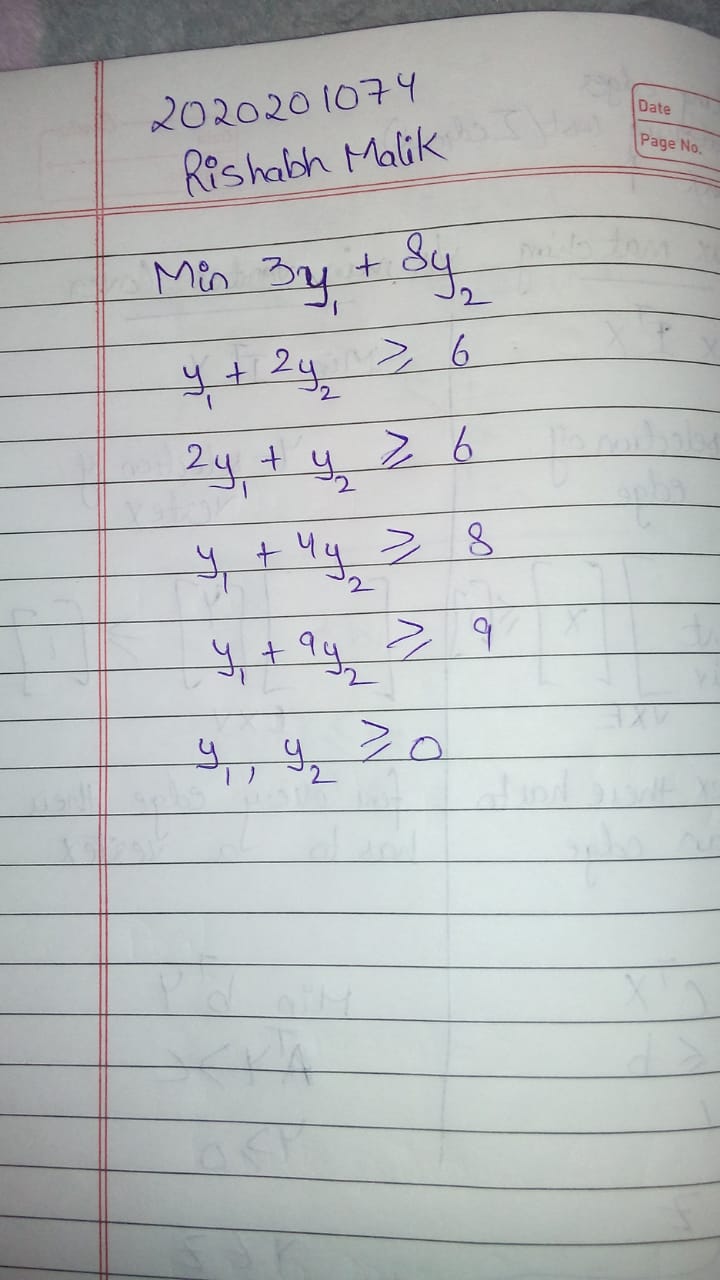 2020201074
Rishabh Malik
Date
Page No.
Min 3y₁ + 8y₂
y₁ + 2y₂ ≥ 6
2y₁ + y₂ ≥ 6
y₁ + 4y₂ ≥ 8
y₁ + 9y₂ ≥ 9
y₁, y₂ ≥ 0